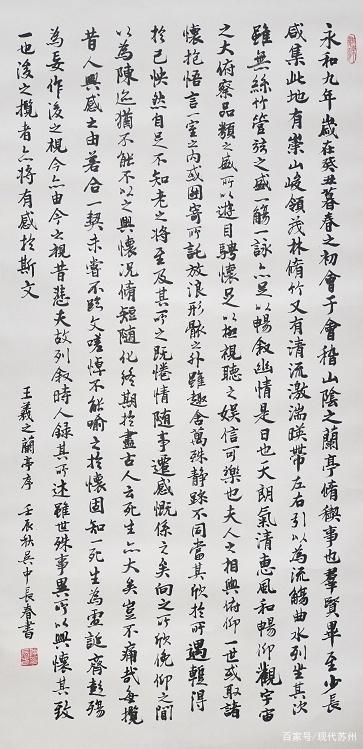 永和九年歲在癸丑暮春之初會于會稽山陰之蘭亭脩稧事也羣賢畢至少長
咸集此地有崇山峻領茂林脩竹又有清流激湍暎帶左右引以為流觴曲水列坐其次
雖無絲竹管弦之盛一觴一詠亦足以暢敘幽情是日也天朗氣清惠風和暢仰觀宇宙
之大俯察品類之盛所以遊目騁懷足以極視聽之娛信可樂也夫人之相與俯仰一世或取諸
懷抱悟言一室之內或因寄所託放浪形骸之外雖趣舍萬殊靜躁不同當其欣於所遇輒得
於己怏然自足不知老之將至及其所之既惓情隨事遷感慨係之矣向之所欣俛仰之間
以為陳迹猶不能不以之興懷況脩短隨化終期於盡古人云死生亦大矣豈不痛哉每攬
昔人興感之由若合一契未嘗不臨文嗟悼不能喻之於懷固知一死生為虛誕齊彭殤
為妄作後之視今亦由今之視昔悲夫故列敘時人錄其所述雖世殊事異所以興懷其致
一也後之攬者亦將有感於斯文
王羲之蘭亭序 壬辰秋吳中長春書
百家号/现代苏州